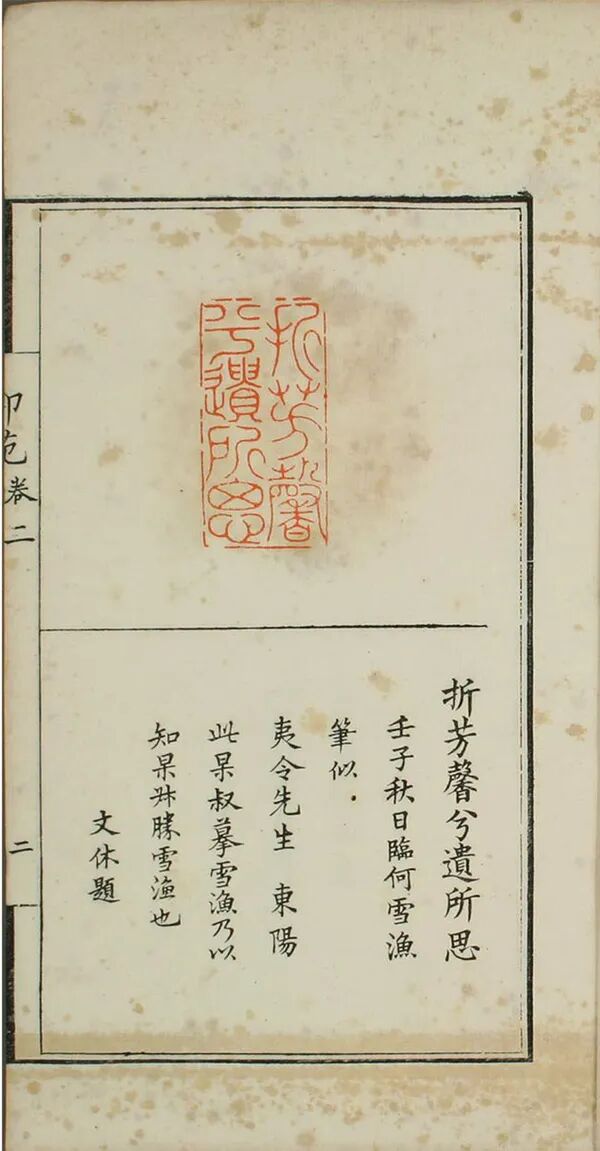 折芳馨
兮遺所思
折芳馨兮遺所思
壬子秋日臨何雪漁
筆似
夷令先生 東陽
此杲叔摹雪漁乃以
知杲叔勝雪漁也
文休題
卷二
二